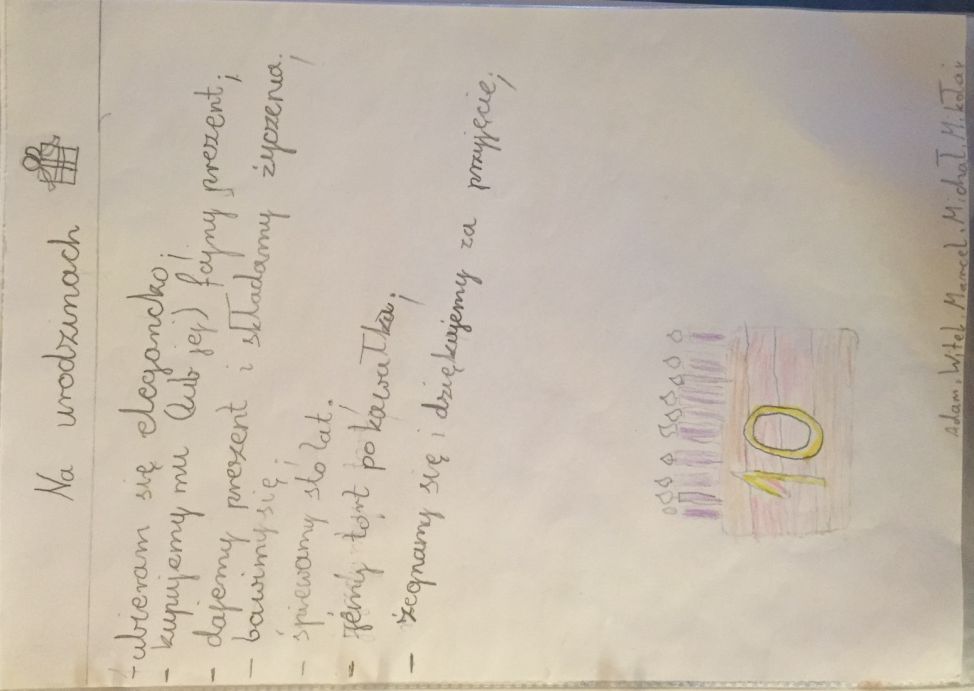 Na urodzinach
- ubieram się elegancko;
- kupujemy mu (lub jej) fajny prezent;
- dajemy prezent i składamy życzenia.
- bawimy się;
- śpiewamy sto lat.
- jemy tort po kawałku;
- żegnamy się i dziękujemy za przyjęcie;
10
Adam, Witek, Marcel, Michał, Mikołaj